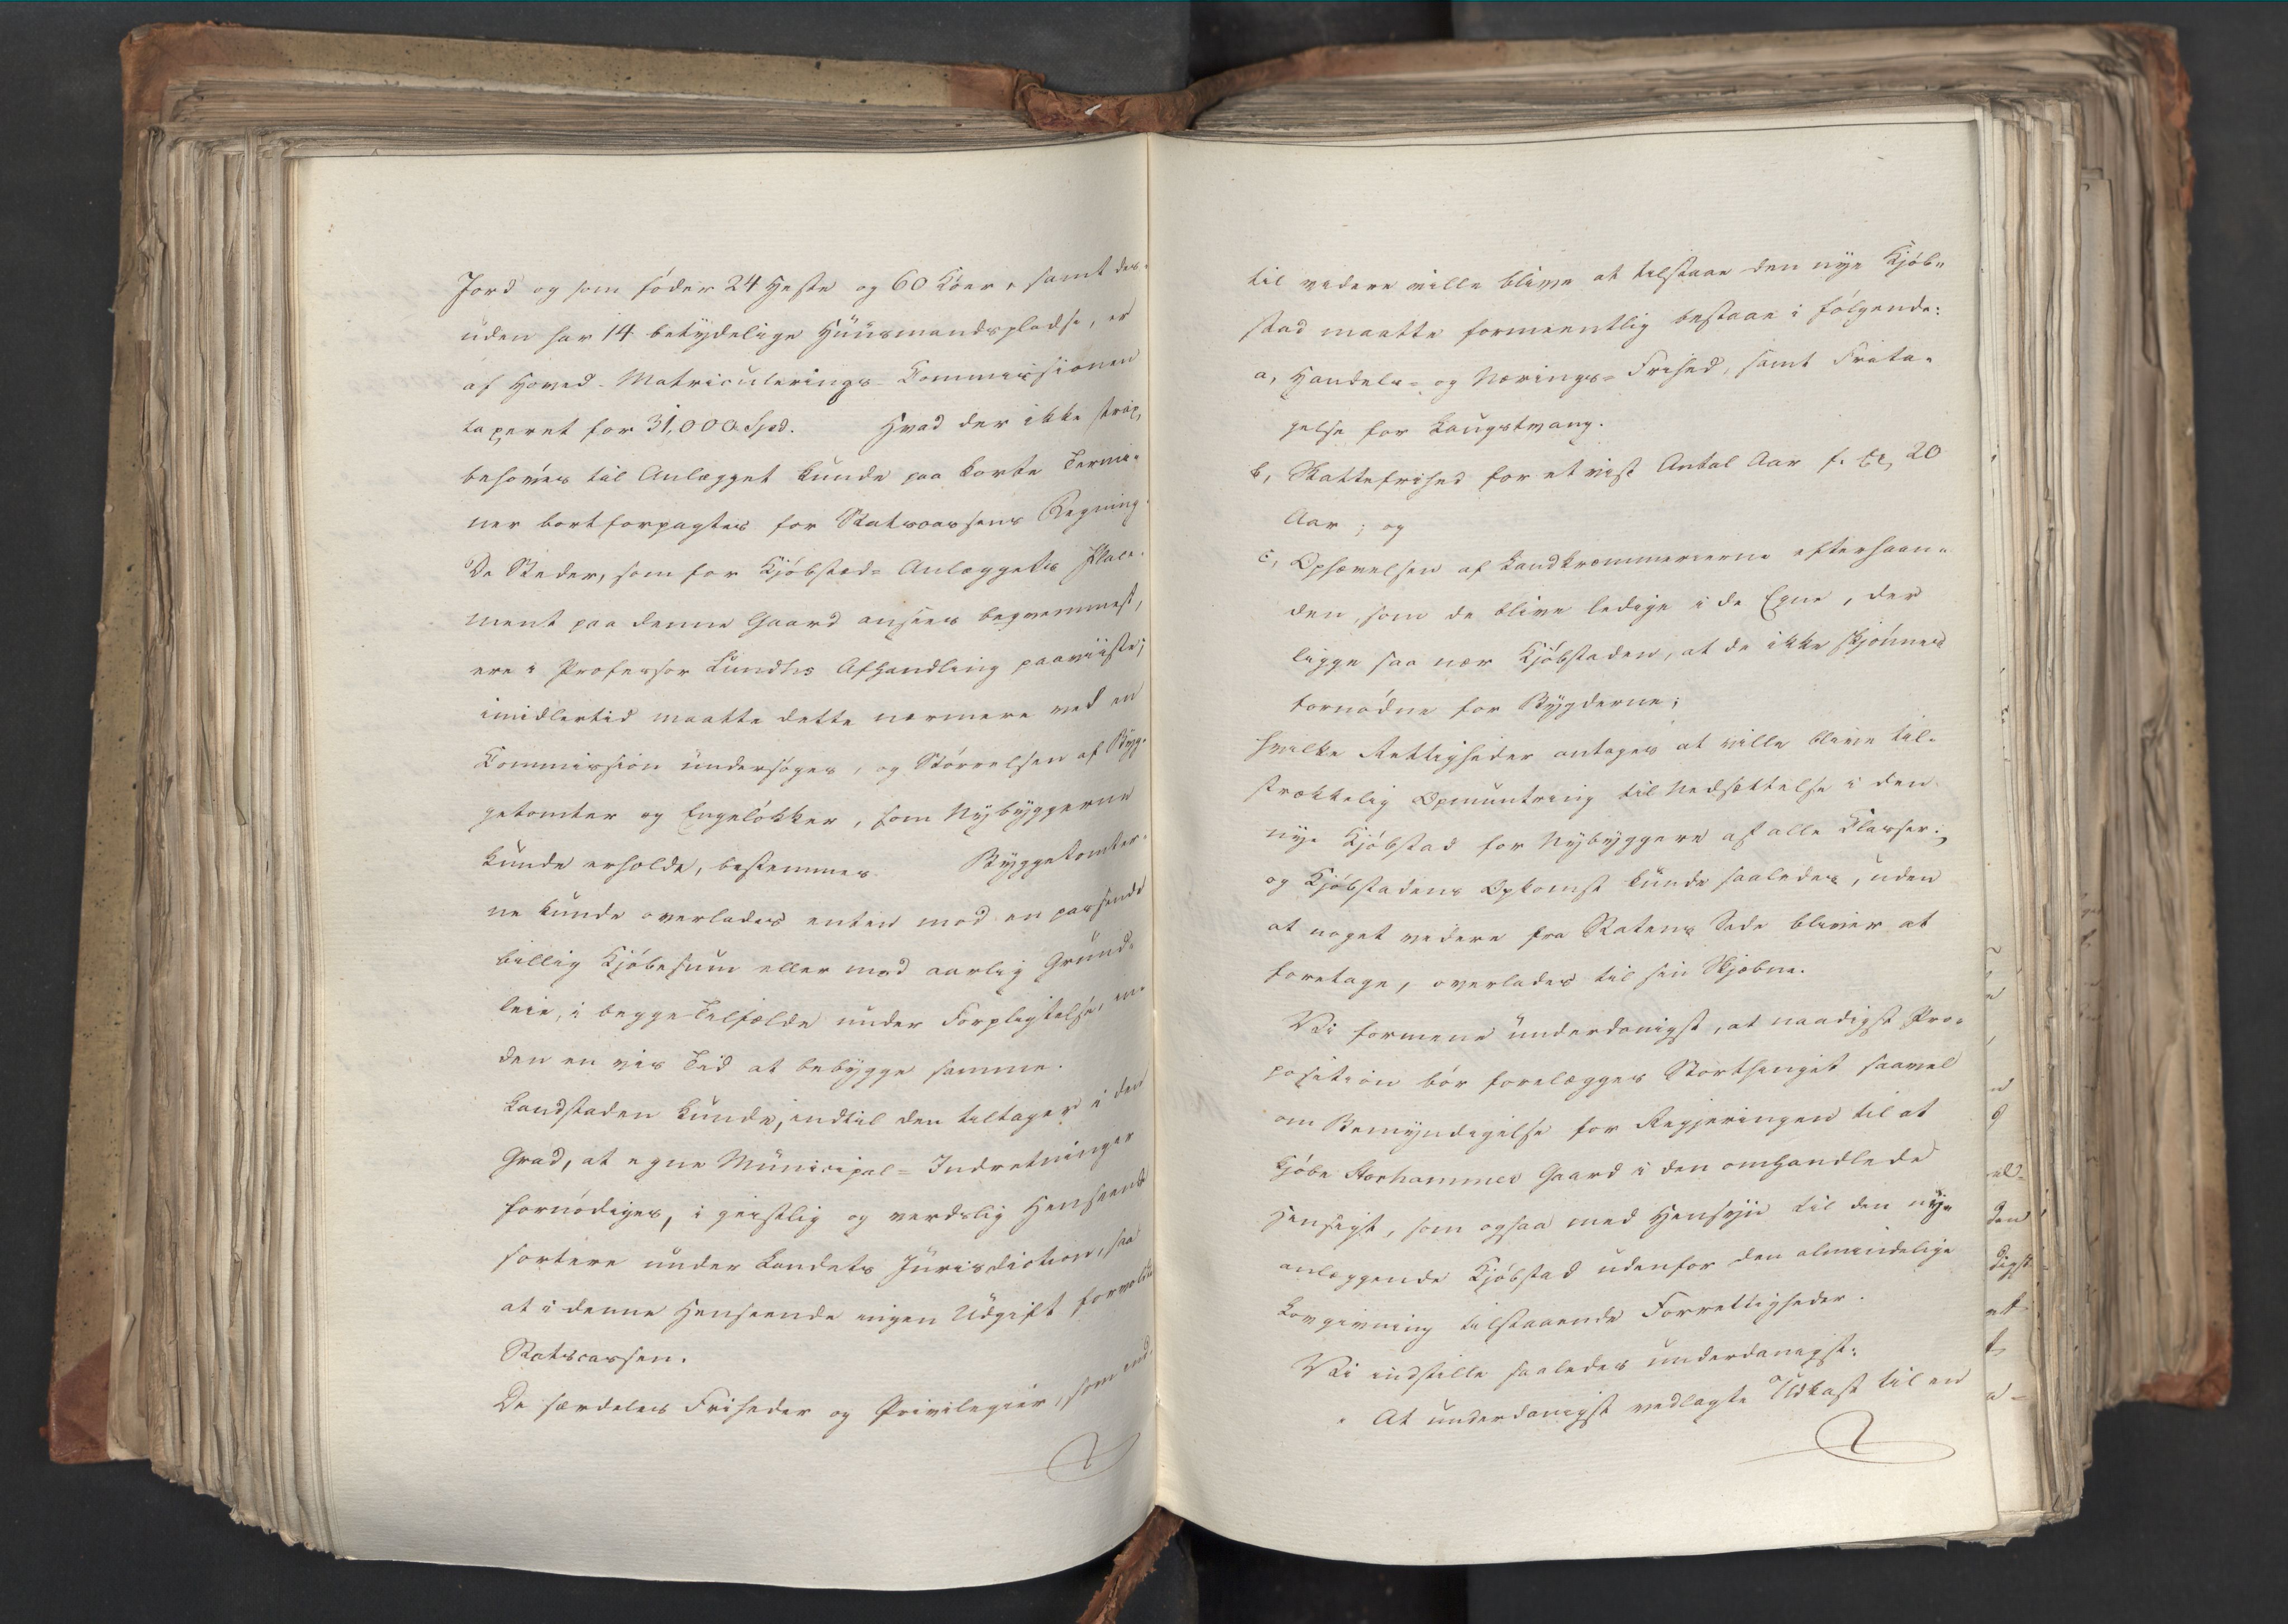 Jord og som föder 24 Heste og 60 Köer, samt des-
uden har 14 betydelige Huusmandspladse, er
af Hoved-Matriculerings-Commissionen
taxeret for 31,000 Spd. Hvad der ikke strax
behöves til Anlægget kunde paa korte Termi-
ner bortforpagtes for Statscassens Regning.
De Steder, som for Kjöbstad-Anlæggets Place-
ment paa denne Gaard ansees beqvemmest,
ere i Professor Lundhs Afhandling paaviiste;
imidlertid maatte dette nærmere ved en
Commission undersöges, og Störrelsen af Byg-
getomter og Engelökker, som Nybyggerne
kunde erholde, bestemmes. Byggetomter-
ne kunde overlades enten mod en passende
billig Kjöbesum eller mod aarlig Grund-
leie, i begge Tilfælde under Forpligtelse, in-
den en vis Tid at bebygge samme.
Landstaden kunde, indtil den tiltager i den
Grad, at egne Municipal-Indretninger
fornödiges, i geistlig og verdslig Henseende
sortere under Landets Jurisdiction, saa
at i denne Henseende ingen Udgift forvoldes
Statscassen.
De særdeles Friheder og Privilegier, som end-
til videre ville blive at tilstaae den nye Kjöb-
stad maatte formeentlig bestaae i fölgende:
a, Handels- og Nærings-Frihed, samt Frita-
gelse for Laugstvang.
b, Skattefrihed for et vist Antal Aar f. Ex, 20
Aar; og
c, Ophævelsen af Landkræmmerierne efterhaan-
den, som de blive ledige i de Egne, der
ligge saa nær Kjöbstaden, at de ikke skjönnes
fornödne for Bygderne;
hvilke Rettigheder antages at ville blive til-
strækkelig Opmuntring til Nedsættelse i den
nye Kjöbstad for Nybyggere af alle Classer;
og Kjöbstadens Opkomst kunde saaledes, uden
at noget videre fra Statens Side bliver at
foretage, overlades til sin Skjæbne.
Vi formene underdanigst, at naadigst Pro-
position bör forelægges Storthinget saavel
om Bemyndigelse for Regjeringen til at
kjöbe Storhammer Gaard i den omhandlede
Hensigt, som ogsaa med Hensyn til den nye
anlæggende Kjöbstad udenfor den almindelige
Lovgivning tilstaaende Forrettigheder.
Vi indstille saaledes underdanigst:
At underdanigst vedlagte Udkast til en